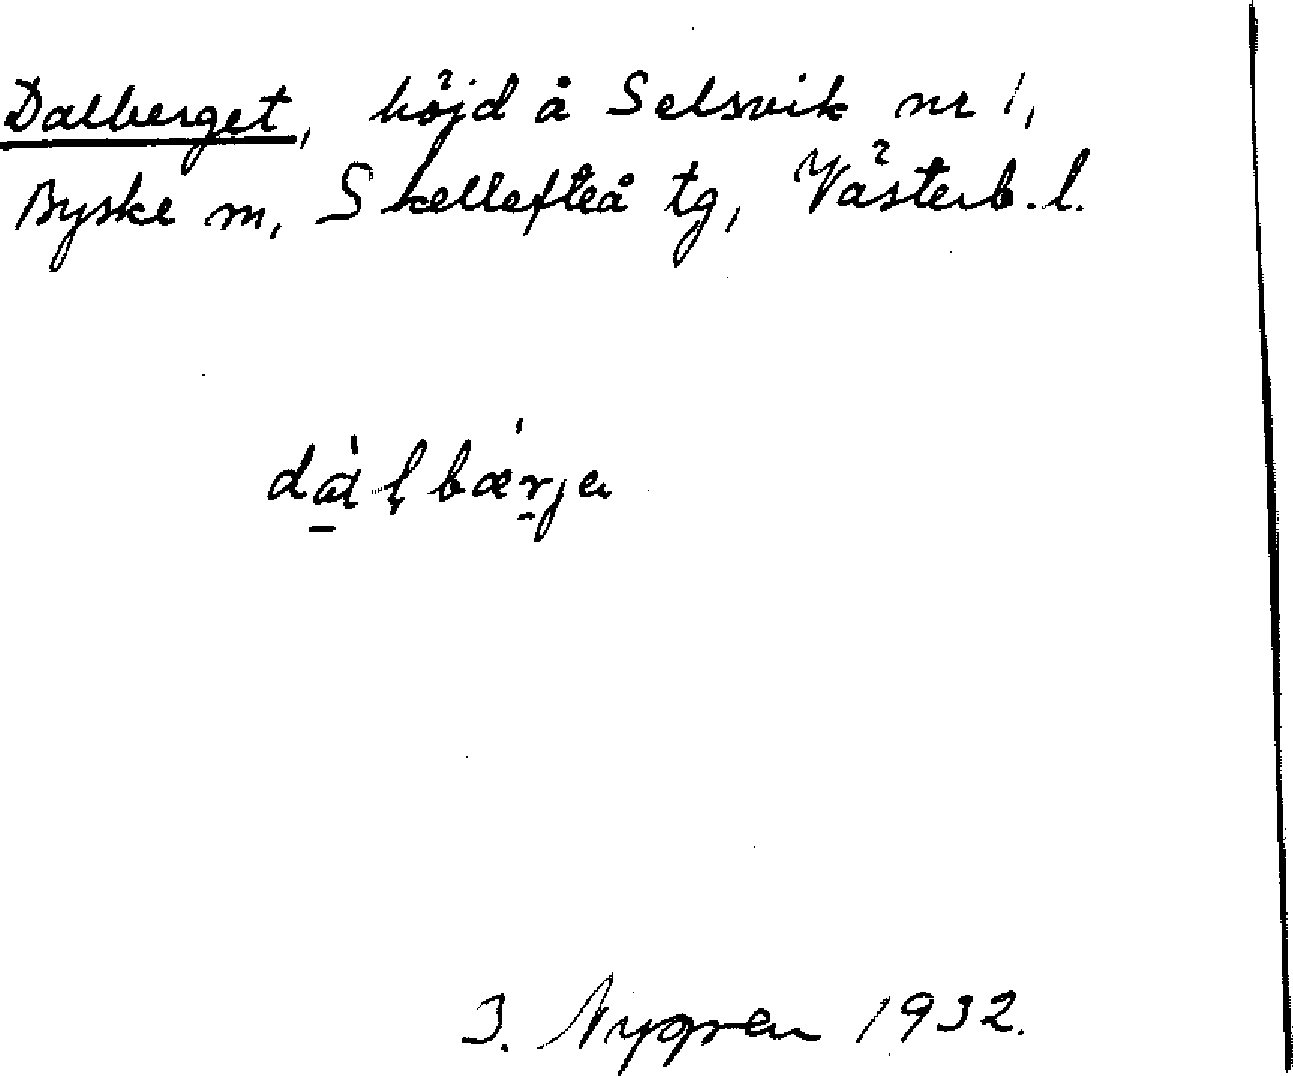 Dalberget, höjd å Selsvik nr 1,
Byske m, Skellefteå tg, Västerb. l.
dàlbær̠ja
I. Nygren 1932.